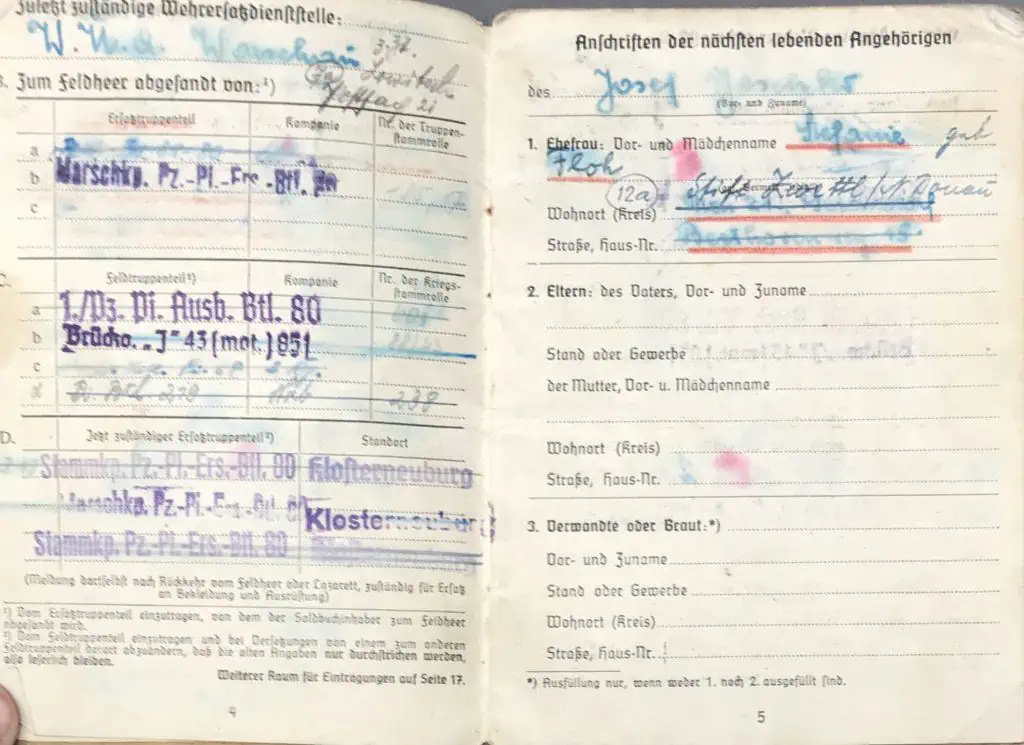 Zuletzt zuständige Wehrersatzdienststelle:
3. 32.
B. Zum Feldheer abgesandt von:¹)
Ersatztruppenteil Kompanie Nr. der Truppen-
stammrolle
a
b Marschkp. Pz.-Pi.-Ers.-Btl.
c
C.
Feldtruppenteil²) Kompanie Nr. der Kriegs-
stammrolle
a 1./Pz. Pi. Ausb. Btl. 80
b Brücko. „J" 43 (mot.) 851
c
d 238
D. Jetzt zuständiger Ersatztruppenteil²) Standort
Stammkp. Pz.-Pi.-Ers.-Btl. 80 Klosterneuburg
Marschkp. Pz.-Pi.-Ers.-Btl. 80 Klosterneuburg
Stammkp. Pz.-Pi.-Ers.-Btl. 80
(Meldung dortselbst nach Rückkehr vom Feldheer oder Lazarett, zuständig für Ersatz
an Bekleidung und Ausrüstung)
¹) Vom Ersatztruppenteil einzutragen, von dem der Soldbuchinhaber zum Feldheer
abgesandt wird.
²) Vom Feldtruppenteil einzutragen und bei Versetzungen von einem zum anderen
Feldtruppenteil derart abzuändern, daß die alten Angaben nur durchstrichen werden,
also leserlich bleiben.
Weiterer Raum für Eintragungen auf Seite 17.
4
Anschriften der nächsten lebenden Angehörigen
des Josef
(Vor- und Zuname)
1. Ehefrau: Vor- und Mädchenname Stefanie geb
Floh
(12a)
Wohnort (Kreis)
Straße, Haus-Nr.
2. Eltern: des Vaters, Vor- und Zuname
Stand oder Gewerbe
der Mutter, Vor- u. Mädchenname
Wohnort (Kreis)
Straße, Haus-Nr.
3. Verwandte oder Braut:*)
Vor- und Zuname
Stand oder Gewerbe
Wohnort (Kreis)
Straße, Haus-Nr.
*) Ausfüllung nur, wenn weder 1. noch 2. ausgefüllt sind.
5